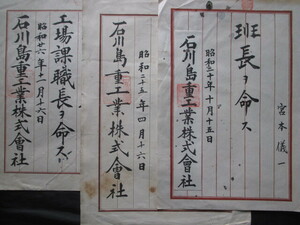 宮本儀一
班長ヲ命ス
昭和二十年十月十五日
石川島重工業株式會社
昭和二十五年四月十六日
石川島重工業株式會社
工場課職長ヲ命ス
昭和廿六年十一月十六日
石川島重工業株式會社